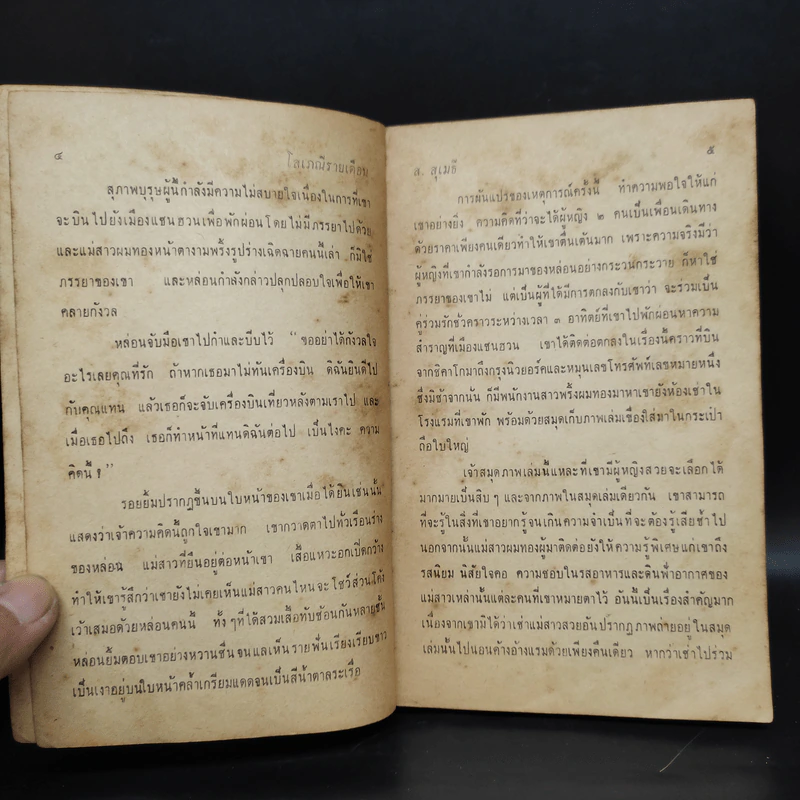 ๔
โสเภณีรายเดือน
สุภาพบุรุษผู้นี้กำลังมีความไม่สบายใจเนื่องในการที่เขา
จะบินไปยังเมืองแซนฮวนเพื่อพักผ่อนโดยไม่มีภรรยาไปด้วย
และแม่สาวผมทองหน้าตางามพริ้งรูปร่างเฉิดฉายคนนี้เล่า ก็มิใช่
ภรรยาของเขา และหล่อนกำลังกล่าวปลุกปลอบใจเพื่อให้เขา
คลายกังวล
หล่อนจับมือเขาไปกำและบีบไว้ "ขออย่าได้กังวลใจ
อะไรเลยคุณที่รัก ถ้าหากเธอมาไม่ทันเครื่องบิน ดิฉันยินดีไป
กับคุณแทน แล้วเธอก็จะจับเครื่องบินเที่ยวหลังตามเราไป และ
เมื่อเธอไปถึง เธอก็ทำหน้าที่แทนดิฉันต่อไป เป็นไงคะ ความ
คิดนี้ ?"
รอยยิ้มปรากฏขึ้นบนใบหน้าของเขาเมื่อได้ยินเช่นนั้น
แสดงว่าเจ้าความคิดนี้ถูกใจเขามาก เขากวาดตาไปทั่วเรือนร่าง
ของหล่อน แม่สาวที่ยืนอยู่ต่อหน้าเขา เสื้อแหวะอกเปิดกว้าง
ทำให้เขารู้สึกว่าเขายังไม่เคยเห็นแม่สาวคนไหนจะโชว์ส่วนโค้ง
เว้าเสมอด้วยหล่อนคนนี้ ทั้งๆที่ได้สวมเสื้อทับซ้อนกันหลายชั้น
หล่อนยิ้มตอบเขาอย่างหวานชื่นจนแลเห็นรายฟันเรียงเรียบขาว
เป็นเงาอยู่บนใบหน้าคล้ำเกรียมแดดจนเป็นสีน้ำตาลระเรื่อ
ส. สุเมธี
๕
การผันแปรของเหตุการณ์ครั้งนี้ ทำความพอใจให้แก่
เขาอย่างยิ่ง ความคิดที่ว่าจะได้ผู้หญิง ๒ คนเป็นเพื่อนเดินทาง
ด้วยราคาเพียงคนเดียวทำให้เขาตื่นเต้นมาก เพราะความจริงมีว่า
ผู้หญิงที่เขากำลังรอการมาของหล่อนอย่างกระวนกระวาย ก็หาใช่
ภรรยาของเขาไม่ แต่เป็นผู้ที่ได้มีการตกลงกับเขาว่า จะร่วมเป็น
คู่ร่วมรักชั่วคราวระหว่างเวลา ๓ อาทิตย์ที่เขาไปพักผ่อนหาความ
สำราญที่เมืองแซนฮวน เขาได้ติดต่อตกลงในเรื่องนี้คราวที่บิน
จากชิคาโกมาถึงกรุงนิวยอร์คและหมุนเลขโทรศัพท์เลขหมายหนึ่ง
ซึ่งมิช้าจากนั้น ก็มีพนักงานสาวพริ้งผมทองมาหาเขายังห้องเช่าใน
โรงแรมที่เขาพัก พร้อมด้วยสมุดเก็บภาพเล่มเขื่องใส่มาในกระเป๋า
ถือใบใหญ่
เจ้าสมุดภาพเล่มนี้แหละที่เขามีผู้หญิงสวยจะเลือกได้
มากมายเป็นสิบๆ และจากภาพในสมุดเล่มเดียวกัน เขาสามารถ
ที่จะรู้ในสิ่งที่เขาอยากรู้จนเกินความจำเป็นที่จะต้องรู้เสียซ้ำไป
นอกจากนั้นแม่สาวผมทองผู้มาติดต่อยังให้ความรู้พิเศษแก่เขาถึง
รสนิยม นิสัยใจคอ ความชอบในรสอาหารและดินฟ้าอากาศของ
แม่สาวเหล่านั้นแต่ละคนที่เขาหมายตาไว้ อันนี้เป็นเรื่องสำคัญมาก
เนื่องจากเขามิได้ว่าเช่าแม่สาวสวยอันปรากฏภาพถ่ายอยู่ในสมุด
เล่มนั้นไปนอนค้างอ้างแรมด้วยเพียงคืนเดียว หากว่าเช่าไปร่วม